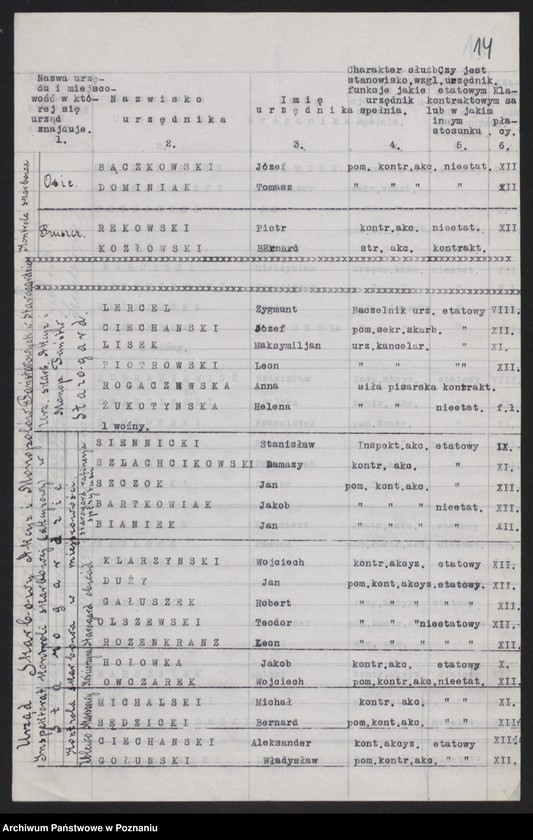 14
Nazwa urzę-
du i miejsco-
wość w któ-
rej się
urząd
znajduje.
1.
N a z w i s k o
u r z ę d n i k a
2.
I m i ę
u r z ę d n i k a
3.
Charakter służb.
stanowisko, wzgl.
funkcje jakie
urzędnik
spełnia.
4.
Czy jest
urzędnik.
etatowym
kontraktowym
lub w jakim
innym
stosunku.
5.
Kla-
sa
pła-
cy.
6.
Osie. BĄCZKOWSKI Józef pom. kontr.akc. nieetat. XII
DOMINIAK Tomasz " " " " XII
REKOWSKI Piotr kontr.akc. nieetat. XII
KOZŁOWSKI Bernard str. akc. kontrakt.
Starogard.
LERCEL Zygmunt Naczelnik urz. etatowy VIII.
CIECHANSKI Józef pom.sekr.skarb. " XII.
LISEK Maksymiljan urz.kancelar. " XI.
PIOTROWSKI Leon " " "" XII.
ROGACZEWSKA Anna siła pisarska kontrakt.
ŻUKOTYNSKA Helena " " nieetat. f.l.
1 woźny.
SIENNICKI Stanisław Inspekt.akc. etatowy IX.
SZLACHCIKOWSKI Damazy kontr. akc. " XI.
SZCZOK Jan pom. kont.akc. " XII.
BARTKOWIAK Jakob " " " nieetat. XII.
BIANIEK Jan " " " " XII.
KLARZYNSKI Wojciech kontr.akcyz. etatowy XII.
DUŻY Jan pom.kont.akcyz.etatowy. XII.
GAŁUSZEK Robert " " " " XII.
OLSZEWSKI Teodor " " "nieetatowy XII.
ROZENKRANZ Leon " " " " XII.
HOŁOWKA Jakob kontr.akc. etatowy X.
OWCZAREK Wojciech pom.kontr.akc.nieetat. XII.
MICHALSKI Michał kontr. akc. " " XI.
SĘDZICKI Bernard pom.kont.akc. " " XII
CIECHANSKI Aleksander kont.akcyz. etatowy XII.
GOŁUNSKI Władysław pom.kontr.akc. " " XII.
Archiwum Państwowe w Poznaniu